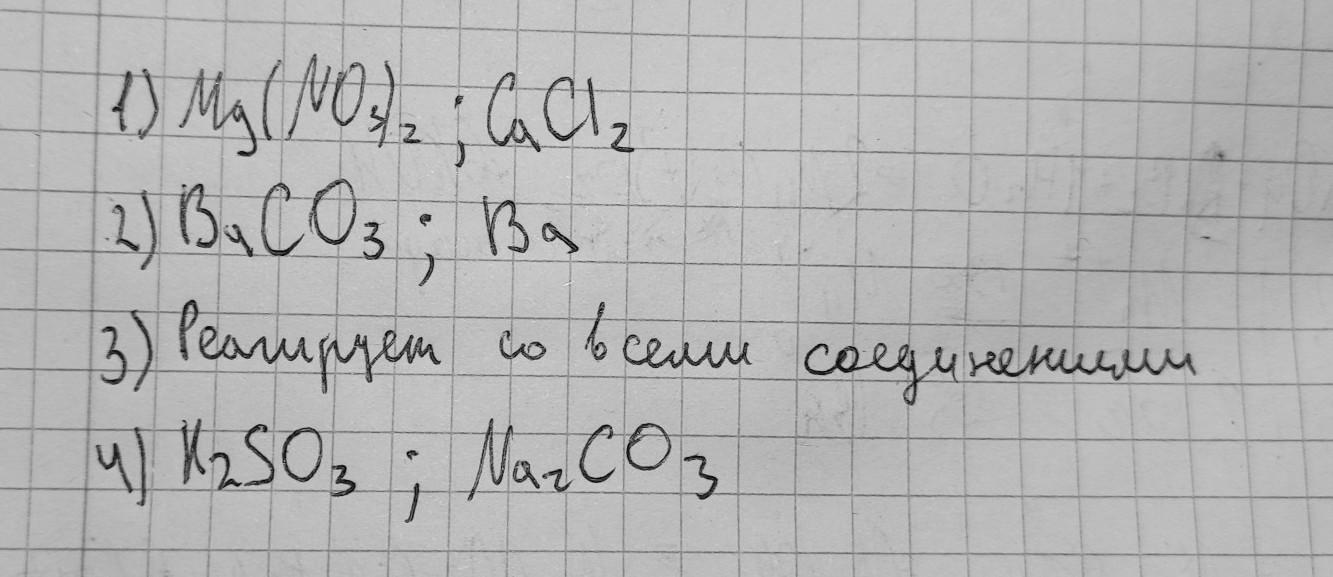 1) Mg(NO₃)₂ ; CaCl₂
2) BaCO₃ ; Ba
3) Реагирует со всеми соединениями
4) K₂SO₃ ; Na₂CO₃